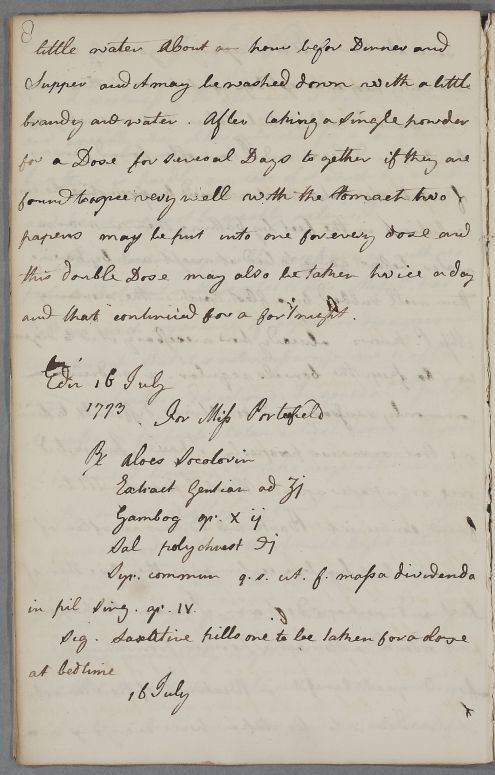 8
little water About an hour befor Dinner and
Supper and it may be washed down with a little
brandy and water. After taking a single powder
for a Dose for several Days together if they are
found to agree very well with the Stomach two
papers may be put into one for every dose and
this double Dose may also be taken twice a day
and that continued for a fortnight.
Edin 16 July
1773. For Miss Porterfield
℞ Aloes Socolorin
Extract Gentian ad ʒj
Gambog gr. X ij
Sal polychrest ℈j
Syr. commun q. s. ut. f. massa dividenda
in pil sing. gr. IV.
Sig. Laxitive pills one to be taken for a dose
at bedtime
16 July